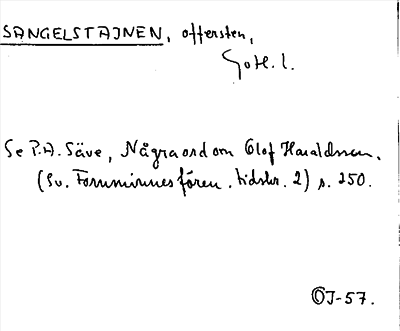 SANGELSTAJNEN, offersten,
Gotl.
Se P.A. Säve, Några ord om Olof Haraldsson.
(Sv. Fornminnesfören. tidskr. 2) s. 250.
OJ-57.